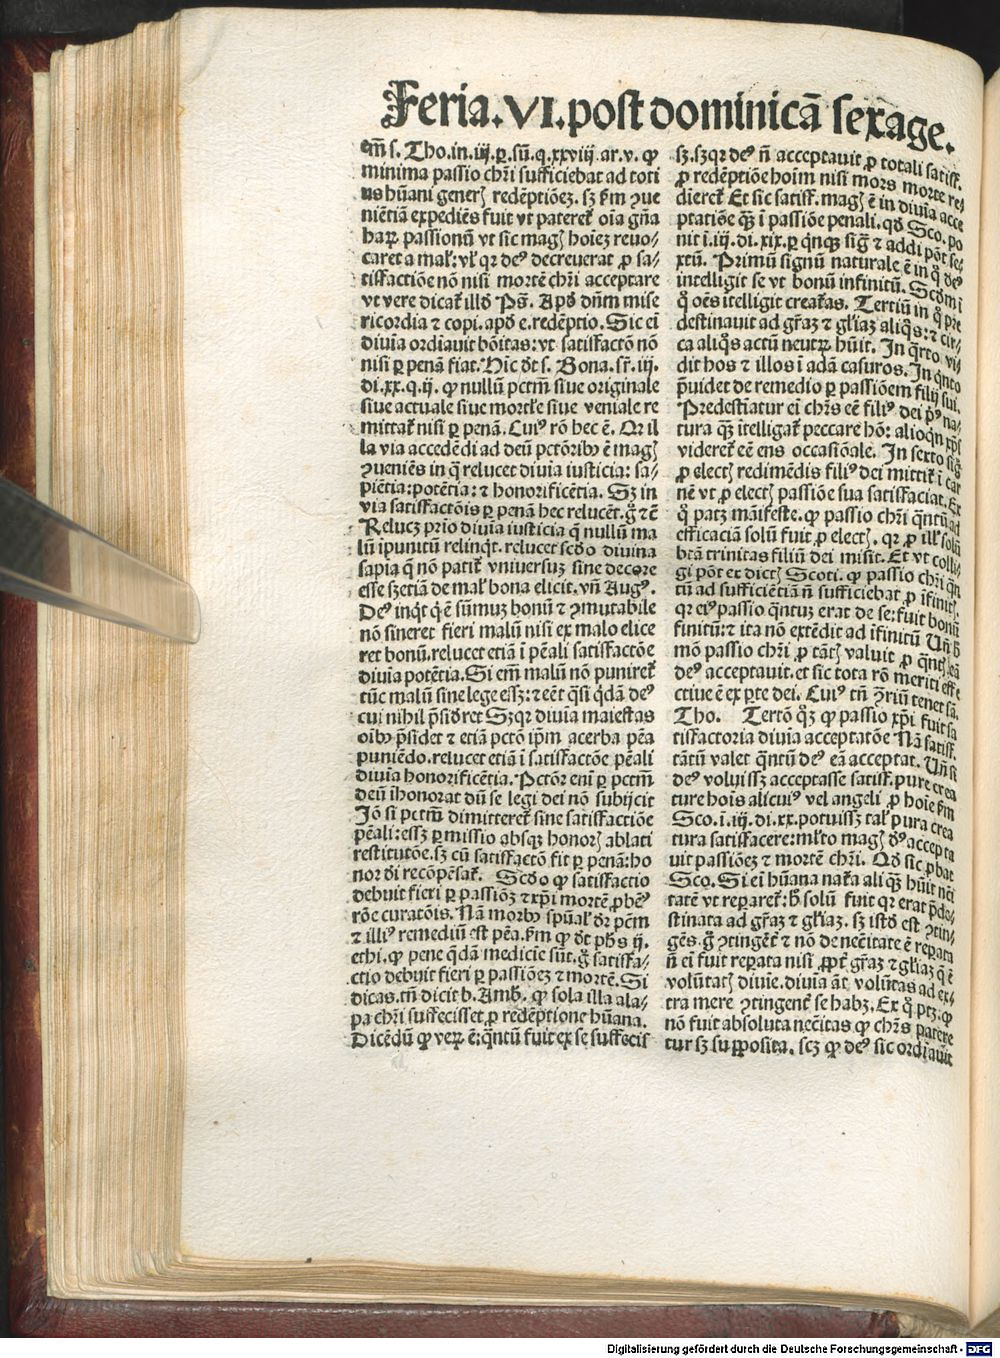 Feria.VI.post dominicā sexage.
em̄ s. Tho.in.iij.ꝑ.sū.q.xxviij.ar.v. ꝙ
minima passio chr̄i sufficiebat ad toti
us hūani generꝭ redēptiōeꝫ. sꝫ fm ꝯue
niētiā expediēs fuit vt pateret̄ oīa gn̄a
haꝝ passionū vt sic magꝭ hoīeꝫ reuo⸗
caret a mal̄: vl̓ qꝛ deꝰ decreuerat ꝓ sa⸗
tisfactiōe nō nisi mortē chr̄i acceptare
vt vere dicat̄ illđ Ps̄. Apđ dn̄m mise
ricordia ⁊ copi. apđ e. redēptio. Sic eī
diuīa ordīauit bōitas: vt satisfactō nō
nisi ꝑ penā fiat. Hīc đt s. Bona. sr̄. iij.
di.xx.q.ij. ꝙ nullū pctm̄ siue originale
siue actuale siue mortl̓e siue veniale re
mittat̄ nisi ꝑ penā. Cuiꝰ rō hec ē. Qꝛ il
la via accedēdi ad deū pctōribꝰ ē magꝭ
ꝯueniēs in q̄ relucet diuīa iusticia: sa⸗
piētia: potētia: ⁊ honorificētia. Sꝫ in
via satisfactōis ꝑ penā hec relucēt. g̊ ⁊cē
Relucꝫ prīo diuīa iusticia q̄ nullū ma
lū īpunitū relinqt. relucet scđo diuina
sapīa q̄ nō patit̄ vniuersuꝫ sine decore
esse sꝫ etiā de mal̄ bona elicit. vn̄ Augꝰ.
Deꝰ inqt q̇ ē sūmuꝫ bonū ⁊ ꝯmutabile
nō sineret fieri malū nisi ex malo elice
ret bonū. relucet etiā ī pēali satisfactōe
diuīa potētia. Si em̄ malū nō puniret̄
tūc malū sine lege essꝫ: ⁊ eēt q̄si q̇dā deꝰ
cui nihil p̄siđret Sꝫ qꝛ diuīa maiestas
oībꝰ p̄sidet ⁊ etiā pctō ip̄m acerba pēa
puniēdo. relucet etiā ī satisfactōe pēali
diuīa honorificētia. Pctōr enī ꝑ pctm̄
deū īhonorat dū se legi dei nō subijcit
Jō si pctm̄ dimitteret̄ sine satisfactiōe
pēali: essꝫ ꝑmissio absqꝫ honorꝭ ablati
restitutōe. sꝫ cū satisfactō fit ꝑ penā: ho
nor đi recōpēsat̄. Scđo ꝙ satisfactio
debuit fieri ꝑ passiōeꝫ ⁊ xp̄i mortē ꝓbeꝰ
rōe curatōis. Nā morbꝰ spūal̓ đr pctm̄
⁊ illiꝰ remediū est pēa. fm ꝙ đt phs̄ ij.
ethi. ꝙ pene q̄dā medicīe sūt. g̊ satisfa⸗
ctio debuit fieri ꝑ passiōeꝫ ⁊ mortē. Si
dicas. tn̄ dicit b. Amb̄. ꝙ sola illa ala⸗
pa chr̄i suffecisset ꝓ redēptione hūana.
Dicēdū ꝙ veꝝ ē: q̄ntū fuit ex se suffecis
sꝫ. sꝫ qꝛ deꝰ n̄ acceptauit ꝓ totali satisf.
ꝓ redēptiōe hoīm nisi mors morte re⸗
dieret̄ Et sic satisf. magꝭ ē in diuīa acce
ptatiōe qꝫ ī passiōe penali. qđ Sco. po
nit ī.iij.di.xix. ꝑ qnqꝫ sig̊ ⁊ addi pōt se⸗
xtū. Primū signū naturale ē in q̊ deꝰ
intelligit se vt bonū infinitū. Scđm ī
q̊ oēs itelligit creat̄as. Tertiū in q̊ pre
destinauit ad gr̄aꝫ ⁊ gl̓iaꝫ aliq̄s: ⁊ cir⸗
ca aliq̄s actū neutꝝ hūit. In q̄rto vi⸗
dit hos ⁊ illos ī adā casuros. In qnto
p̄uidet de remedio ꝑ passiōem filij sui.
Predestīatur eī chr̄s eē filiꝰ dei pꝰ na⸗
tura qꝫ itelligat̄ peccare hō: alioqn xp̄s
videret̄ eē ens occasiōale. In sexto sig̊
ꝓ electꝭ redimēdis filiꝰ dei mittit̄ ī car
nē vt ꝓ electꝭ passiōe sua satisfaciat. Ex
q̊ patꝫ māifeste. ꝙ passio chr̄i q̄ntū ad
efficaciā solū fuit ꝓ electꝭ. qꝛ ꝓ ill̓ solū
btā trinitas filiū dei misit. Et vt colli⸗
gi pōt ex dictꝭ Scoti. ꝙ passio chr̄i q̄n
tū ad sufficiētiā n̄ sufficiebat ꝓ īfinitꝭ.
qꝛ eiꝰ passio q̄ntuꝫ erat de se: fuit bonū
finitū: ⁊ ita nō extēdit ad īfinitū Un̄ b̄
mō passio chr̄i ꝓ tātꝭ valuit ꝓ q̄ntꝭ eā
deꝰ acceptauit. et sic tota rō meriti effe
ctiue ē ex ꝑte dei. Cuiꝰ tn̄ ꝯriū tenet sā.
Tho. Tertō q̊ꝫ ꝙ passio xp̄i fuit sa
tisfactoria diuīa acceptatōe Nā satisf.
tātū valet q̄ntū deꝰ eā acceptat. Un̄ si
deꝰ voluissꝫ acceptasse satisf. pure crea
ture hoīs alicuiꝰ vel angeli ꝓ hoīe fm
Sco. ī. iij. di.xx. potuissꝫ tal̓ pura crea
tura satisfacere: ml̓to magꝭ đꝰ accepta
uit passiōeꝫ ⁊ mortē chr̄i. Qđ sic ꝓbat
Sco. Si eī hūana nat̄a aliqꝫ hūit nēi
tatē vt reparet̄: h̄ solū fuit qꝛ erat p̄de⸗
stinata ad gr̄aꝫ ⁊ gl̓iaꝫ. sꝫ istđ est ꝯtin⸗
gēs. g̊ ꝯtingēt̄ ⁊ nō de necitate ē repata
n̄ eī fuit repata nisi ꝓpt̄ gr̄aꝫ ⁊ gl̓iaꝫ q̄ ē
volūtatꝭ diuīe. diuīa āt volūtas ad ex⸗
tra mere ꝯtingent̄ se habꝫ. Ex q̊ ptꝫ. ꝙ
nō fuit absoluta necitas ꝙ chr̄s patere
tur sꝫ supposita. scꝫ ꝙ deꝰ sic ordīauit
Digitalisierung gefördert durch die Deutsche Forschungsgemeinschaft - DFG